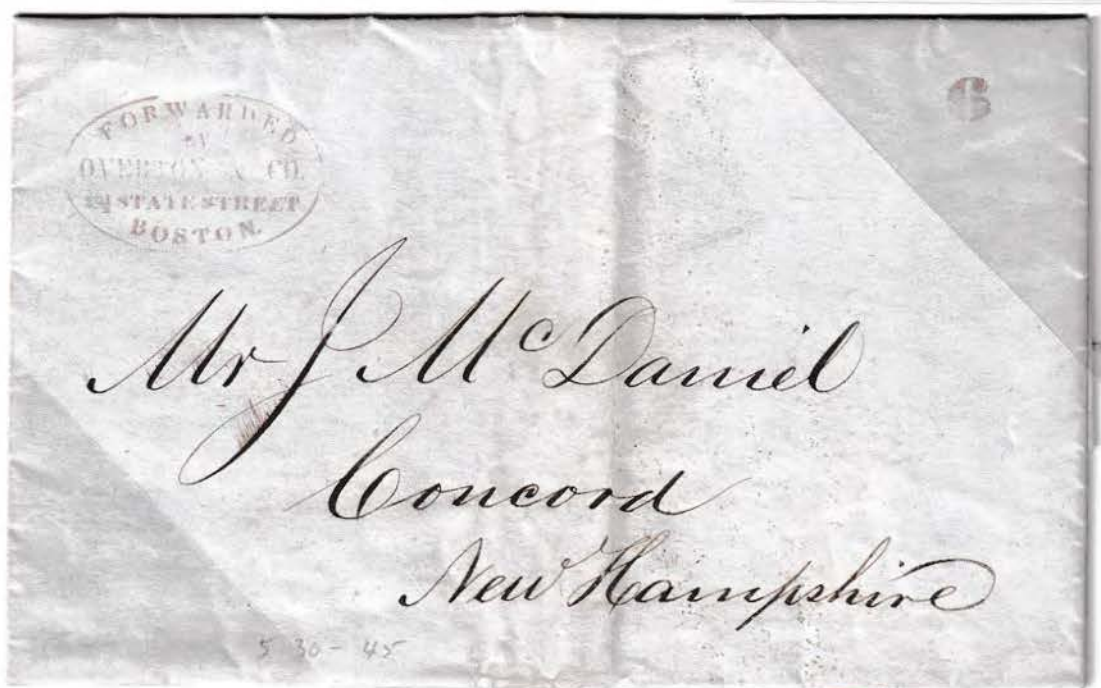 FORWARDED
OVERTON & CO.
STATE STREET
BOSTON.
6
Mr J McDaniel
Concord
New Hampshire
5 30 - 45